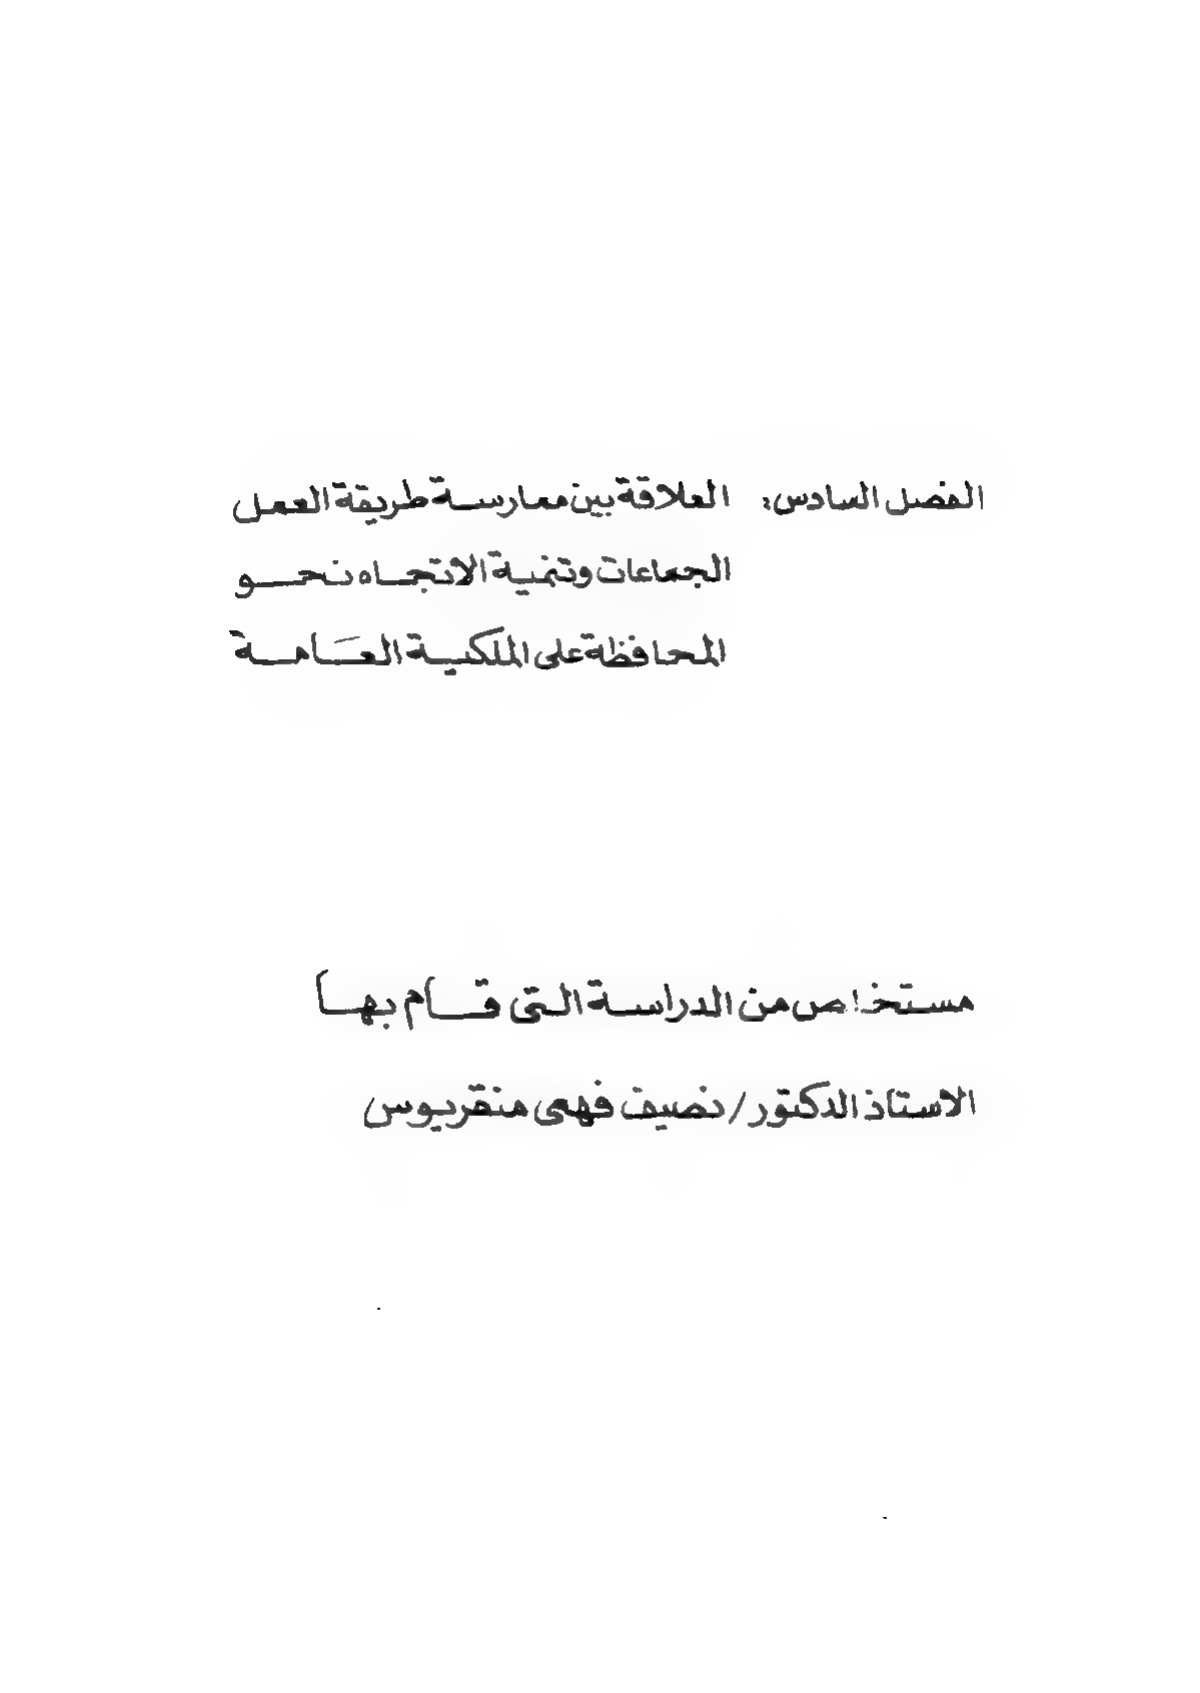 الفصل السادس: العلاقة بين ممارسة طريقة العمل
الجماعات وتنمية الاتجاه نحو
المحافظة على الملكية العامة
مستخلص من الدراسة التى قام بها
الاستاذ الدكتور / نصيف فهمى منقريوس